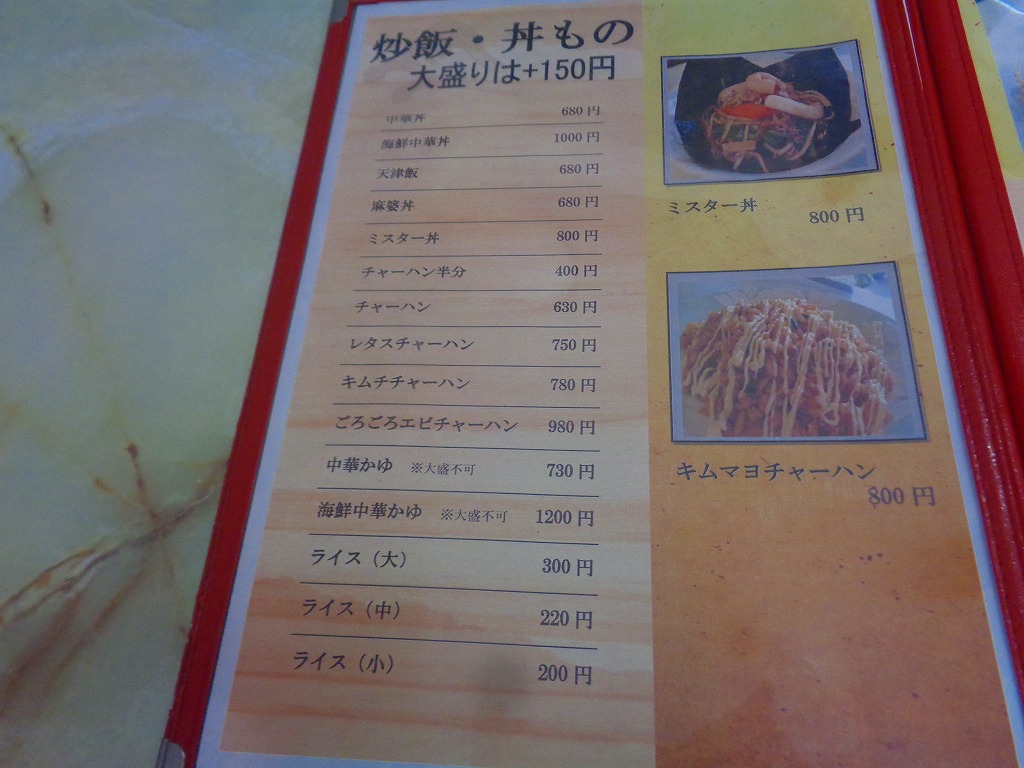 炒飯・丼もの
大盛りは+150円
中華丼 680円
海鮮中華丼 1000円
天津飯 680円
麻婆丼 680円
ミスター丼 800円
チャーハン半分 400円
チャーハン 630円
レタスチャーハン 750円
キムチチャーハン 780円
ごろごろエビチャーハン 980円
中華かゆ ※大盛不可 730円
海鮮中華かゆ ※大盛不可 1200円
ライス（大） 300円
ライス（中） 220円
ライス（小） 200円
ミスター丼
800円
キムマヨチャーハン
800円